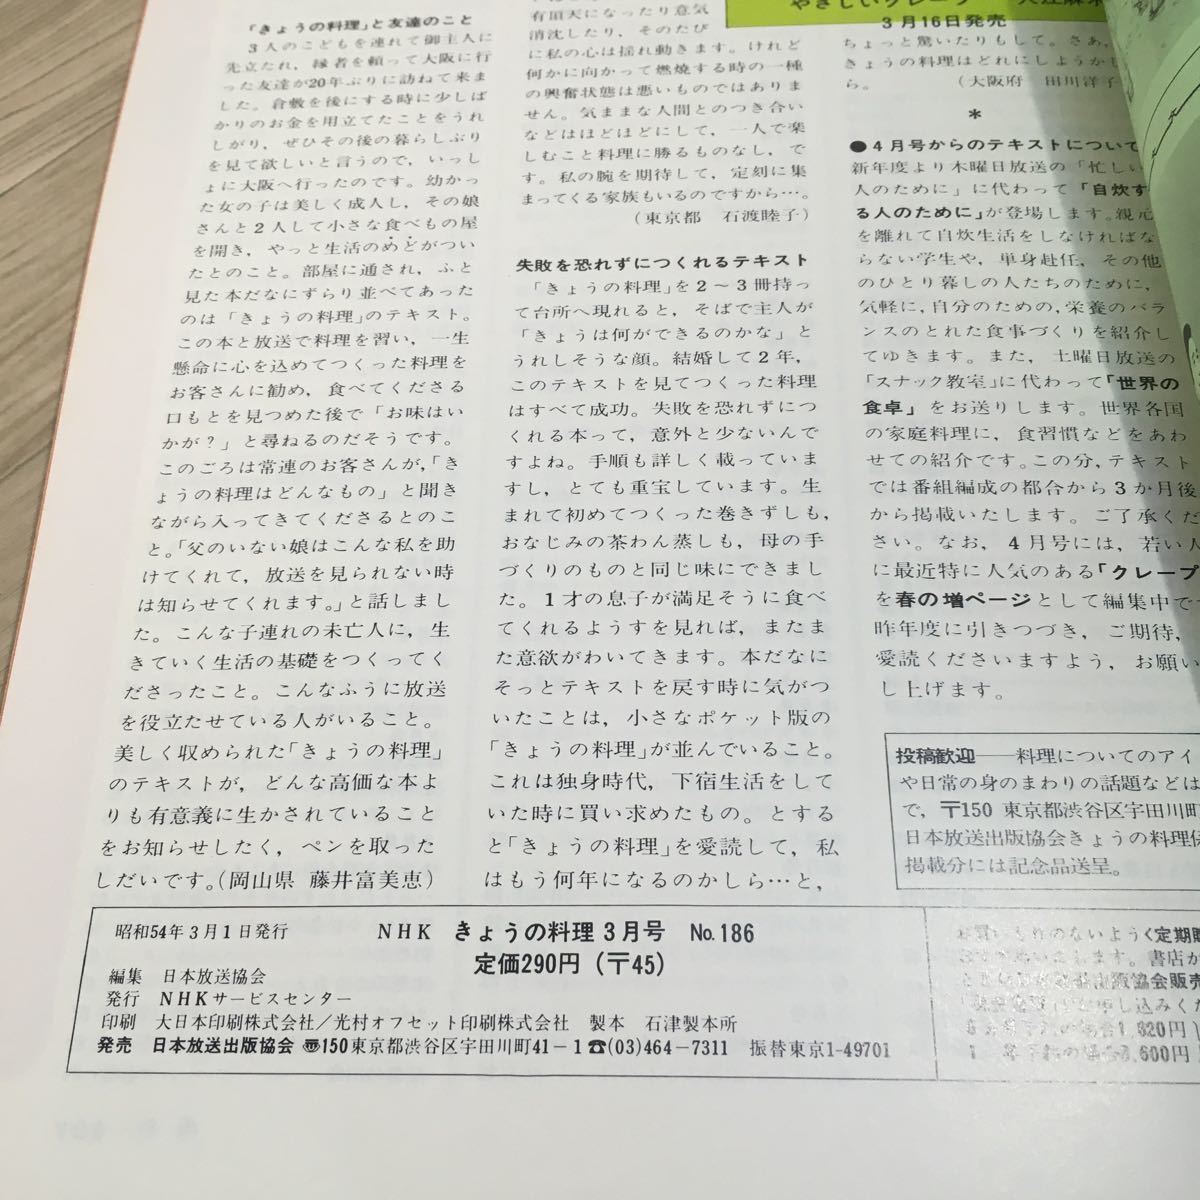 「きょうの料理」と友達のこと
3人のこどもを連れて御主人に
先立たれ，縁者を頼って大阪に行
った友達が20年ぶりに訪ねて来ま
した。倉敷を後にする時に少しば
かりのお金を用立てたことをうれ
しがり，ぜひその後の暮らしぶり
を見て欲しいと言うので，いっし
ょに大阪へ行ったのです。幼かっ
た女の子は美しく成人し，その娘
さんと2人して小さな食べもの屋
を開き，やっと生活のめどがつい
たとのこと。部屋に通され，ふと
見た本だなにずらり並べてあった
のは「きょうの料理」のテキスト。
この本と放送で料理を習い，一生
懸命に心を込めてつくった料理を
お客さんに勧め，食べてくださる
口もとを見つめた後で「お味はい
かが？」と尋ねるのだそうです。
このごろは常連のお客さんが，「き
ょうの料理はどんなもの」と聞き
ながら入ってきてくださるとのこ
と。「父のいない娘はこんな私を助
けてくれて，放送を見られない時
は知らせてくれます。」と話しまし
た。こんな子連れの未亡人に，生
きていく生活の基礎をつくってく
ださったこと。こんなふうに放送
を役立たせている人がいること。
美しく収められた「きょうの料理」
のテキストが，どんな高価な本よ
りも有意義に生かされていること
をお知らせしたく，ペンを取った
しだいです。(岡山県　藤井富美恵)
有頂天になったり意気
消沈したり，そのたび
に私の心は揺れ動きます。けれど
何かに向かって燃焼する時の一種
の興奮状態は悪いものではありま
せん。気ままな人間とのつき合い
などはほどほどにして，一人で楽
しむこと料理に勝るものなし，で
す。私の腕を期待して，定刻に集
まってくる家族もいるのですから…。
(東京都　石渡睦子)
失敗を恐れずにつくれるテキスト
「きょうの料理」を2〜3冊持っ
て台所へ現れると，そばで主人が
「きょうは何ができるのかな」と
うれしそうな顔。結婚して2年，
このテキストを見てつくった料理
はすべて成功。失敗を恐れずにつ
くれる本って，意外と少ないんで
すよね。手順も詳しく載っていま
すし，とても重宝しています。生
まれて初めてつくった巻きずしも，
おなじみの茶わん蒸しも，母の手
づくりのものと同じ味にできまし
た。1才の息子が満足そうに食べ
てくれるようすを見れば，またま
た意欲がわいてきます。本だなに
そっとテキストを戻す時に気がつ
いたことは，小さなポケット版の
「きょうの料理」が並んでいること。
これは独身時代，下宿生活をして
いた時に買い求めたもの。とする
と「きょうの料理」を愛読して，私
はもう何年になるのかしら…と，
3月16日発売
ちょっと驚いたりもして。さあ，
きょうの料理はどれにしようかし
ら。
(大阪府　田川洋子)
＊
●4月号からのテキストについて
新年度より木曜日放送の「忙しい
人のために」に代わって「自炊す
る人のために」が登場します。親元
を離れて自炊生活をしなければな
らない学生や，単身赴任，その他
のひとり暮しの人たちのために，
気軽に，自分のための，栄養のバラ
ンスのとれた食事づくりを紹介し
てゆきます。また，土曜日放送の
「スナック教室」に代わって「世界の
食卓」をお送りします。世界各国
の家庭料理に，食習慣などをあわ
せての紹介です。この分，テキスト
では番組編成の都合から3か月後
から掲載いたします。ご了承くだ
さい。なお，4月号には，若い人
に最近特に人気のある「クレープ」
を春の増ページとして編集中で
昨年度に引きつづき，ご期待，
愛読くださいますよう，お願い
し上げます。
投稿歓迎――料理についてのアイ
や日常の身のまわりの話題などは
で，〒150 東京都渋谷区宇田川町
日本放送出版協会きょうの料理係
掲載分には記念品送呈。
昭和54年3月1日発行
NHK　きょうの料理3月号　No.186
定価290円 (〒45)
編集　日本放送協会
発行　NHKサービスセンター
印刷　大日本印刷株式会社／光村オフセット印刷株式会社　製本　石津製本所
発売　日本放送出版協会 〠150東京都渋谷区宇田川町41－1☎(03)464－7311　振替東京1-49701